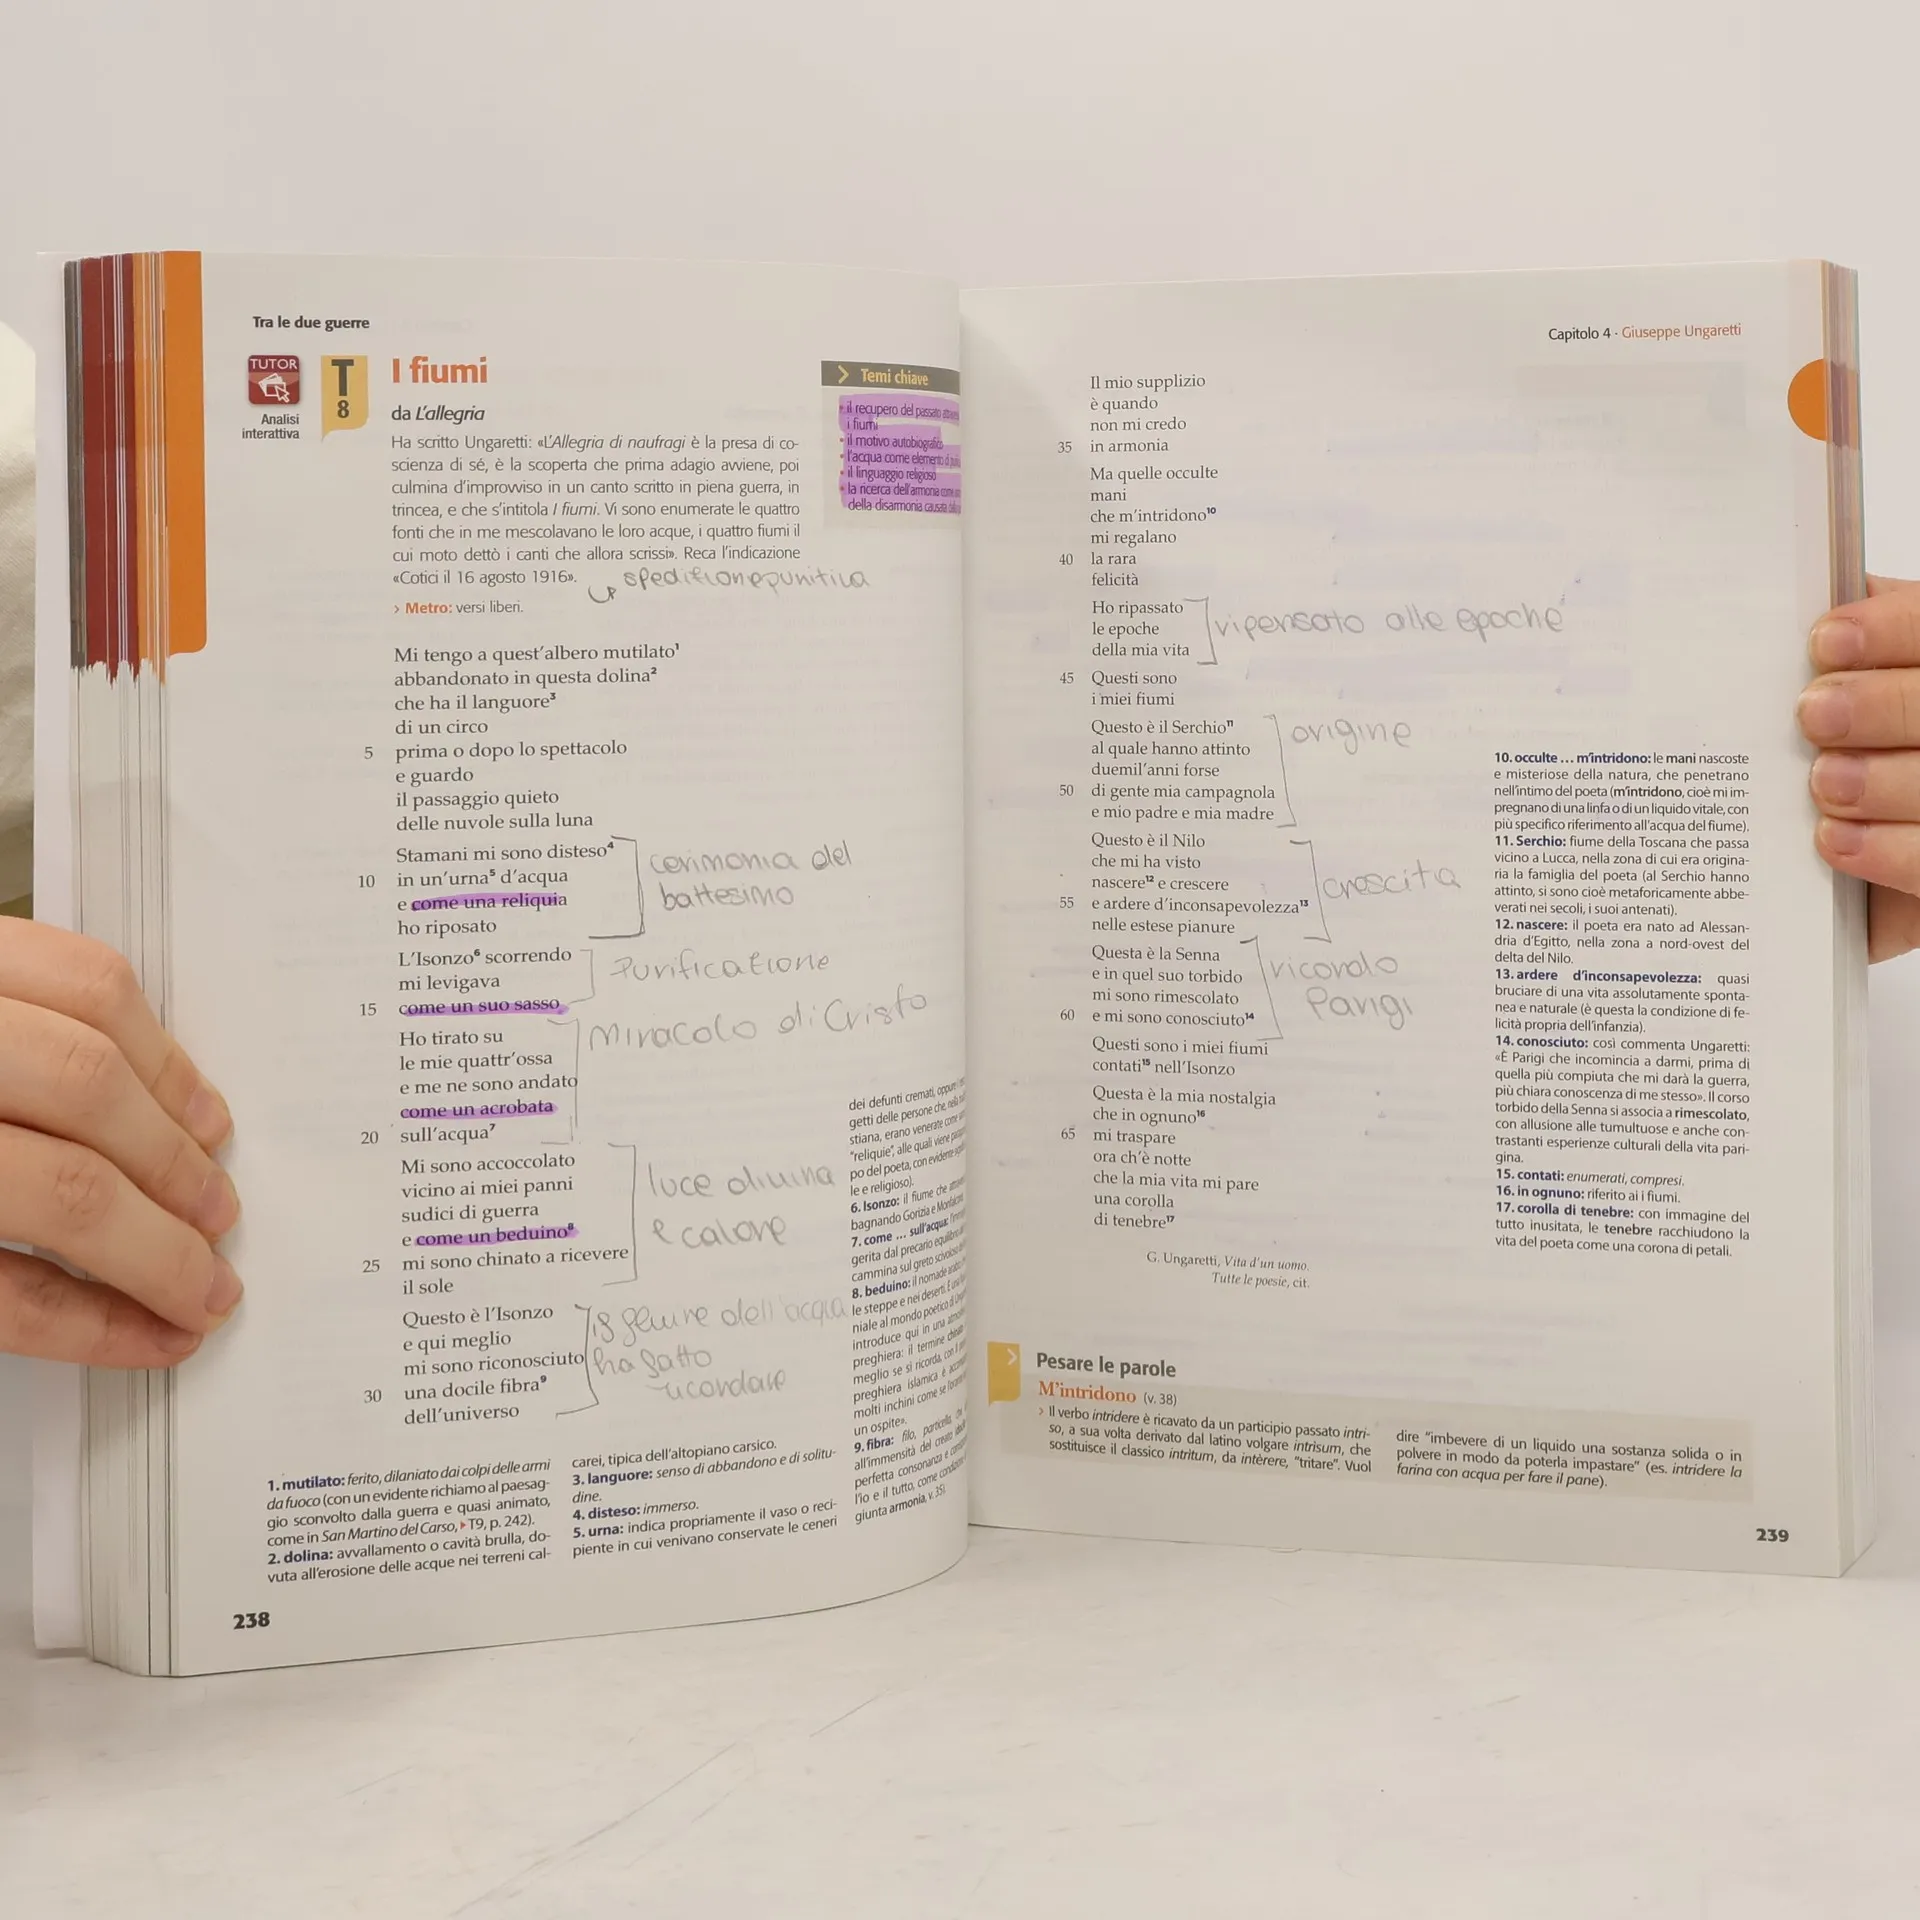 Tra le due guerre
TUTOR
Analisi
interattiva
T
8
I fiumi
da L'allegria
Ha scritto Ungaretti: «L'Allegria di naufragi è la presa di co-
scienza di sé, è la scoperta che prima adagio avviene, poi
culmina d'improvviso in un canto scritto in piena guerra, in
trincea, e che s'intitola I fiumi. Vi sono enumerate le quattro
fonti che in me mescolavano le loro acque, i quattro fiumi il
cui moto dettò i canti che allora scrissi». Reca l'indicazione
«Cotici il 16 agosto 1916».
spedizione punitiva
› Metro: versi liberi.
> Temi chiave
• il recupero del passato
i fiumi
• il motivo autobiografico
• l'acqua come elemento di
• il linguaggio religioso
• la ricerca dell'armonia come
della disarmonia causata
Mi tengo a quest'albero mutilato¹
abbandonato in questa dolina²
che ha il languore³
di un circo
5 prima o dopo lo spettacolo
e guardo
il passaggio quieto
delle nuvole sulla luna
Stamani mi sono disteso⁴
10 in un'urna⁵ d'acqua
e come una reliquia
ho riposato
cerimonia del
battesimo
L'Isonzo⁶ scorrendo
mi levigava
15 come un suo sasso
Purificazione
Ho tirato su
le mie quattr'ossa
e me ne sono andato
come un acrobata
20 sull'acqua⁷
Miracolo di Cristo
Mi sono accoccolato
vicino ai miei panni
sudici di guerra
e come un beduino⁸
25 mi sono chinato a ricevere
il sole
luce divina
e calore
Questo è l'Isonzo
e qui meglio
mi sono riconosciuto
30 una docile fibra⁹
dell'universo
dell'acqua
ha fatto
ricordare
1. mutilato: ferito, dilaniato dai colpi delle armi
da fuoco (con un evidente richiamo al paesag-
gio sconvolto dalla guerra e quasi animato,
come in San Martino del Carso, ▸T9, p. 242).
2. dolina: avvallamento o cavità brulla, do-
vuta all'erosione delle acque nei terreni cal-
carei, tipica dell'altopiano carsico.
3. languore: senso di abbandono e di solitu-
dine.
4. disteso: immerso.
5. urna: indica propriamente il vaso o reci-
piente in cui venivano conservate le ceneri
dei defunti cremati, oppure
getti delle persone che, nella
stiana, erano venerate come
"reliquie", alle quali viene
po del poeta, con evidente
le e religioso).
6. Isonzo: il fiume che
bagnando Gorizia e Monfalcone
7. come ... sull'acqua:
gerita dal precario equilibrio
cammina sul greto scivoloso
8. beduino: il nomade arabo
le steppe e nei deserti. È una
niale al mondo poetico di
introduce qui in una
preghiera: il termine chinato
meglio se si ricorda, con il
preghiera islamica è
molti inchini come se
un ospite».
9. fibra: filo, particella,
all'immensità del creato
perfetta consonanza e
l'io e il tutto, come
giunta armonia, v. 35).
238
Capitolo 4 · Giuseppe Ungaretti
Il mio supplizio
è quando
non mi credo
35 in armonia
Ma quelle occulte
mani
che m'intridono¹⁰
mi regalano
40 la rara
felicità
Ho ripassato
le epoche
della mia vita
ripensato alle epoche
45 Questi sono
i miei fiumi
Questo è il Serchio¹¹
al quale hanno attinto
duemil'anni forse
50 di gente mia campagnola
e mio padre e mia madre
origine
Questo è il Nilo
che mi ha visto
nascere¹² e crescere
55 e ardere d'inconsapevolezza¹³
nelle estese pianure
crescita
Questa è la Senna
e in quel suo torbido
mi sono rimescolato
60 e mi sono conosciuto¹⁴
ricordo
Parigi
Questi sono i miei fiumi
contati¹⁵ nell'Isonzo
Questa è la mia nostalgia
che in ognuno¹⁶
65 mi traspare
ora ch'è notte
che la mia vita mi pare
una corolla
di tenebre¹⁷
G. Ungaretti, Vita d'un uomo.
Tutte le poesie, cit.
10. occulte ... m'intridono: le mani nascoste
e misteriose della natura, che penetrano
nell'intimo del poeta (m'intridono, cioè mi im-
pregnano di una linfa o di un liquido vitale, con
più specifico riferimento all'acqua del fiume).
11. Serchio: fiume della Toscana che passa
vicino a Lucca, nella zona di cui era origina-
ria la famiglia del poeta (al Serchio hanno
attinto, si sono cioè metaforicamente abbe-
verati nei secoli, i suoi antenati).
12. nascere: il poeta era nato ad Alessan-
dria d'Egitto, nella zona a nord-ovest del
delta del Nilo.
13. ardere d'inconsapevolezza: quasi
bruciare di una vita assolutamente sponta-
nea e naturale (è questa la condizione di fe-
licità propria dell'infanzia).
14. conosciuto: così commenta Ungaretti:
«È Parigi che incomincia a darmi, prima di
quella più compiuta che mi darà la guerra,
più chiara conoscenza di me stesso». Il corso
torbido della Senna si associa a rimescolato,
con allusione alle tumultuose e anche con-
trastanti esperienze culturali della vita pari-
gina.
15. contati: enumerati, compresi.
16. in ognuno: riferito ai i fiumi.
17. corolla di tenebre: con immagine del
tutto inusitata, le tenebre racchiudono la
vita del poeta come una corona di petali.
Pesare le parole
M'intridono (v. 38)
› Il verbo intridere è ricavato da un participio passato intri-
so, a sua volta derivato dal latino volgare intrisum, che
sostituisce il classico intritum, da intèrere, "tritare". Vuol
dire "imbevere di un liquido una sostanza solida o in
polvere in modo da poterla impastare" (es. intridere la
farina con acqua per fare il pane).
239